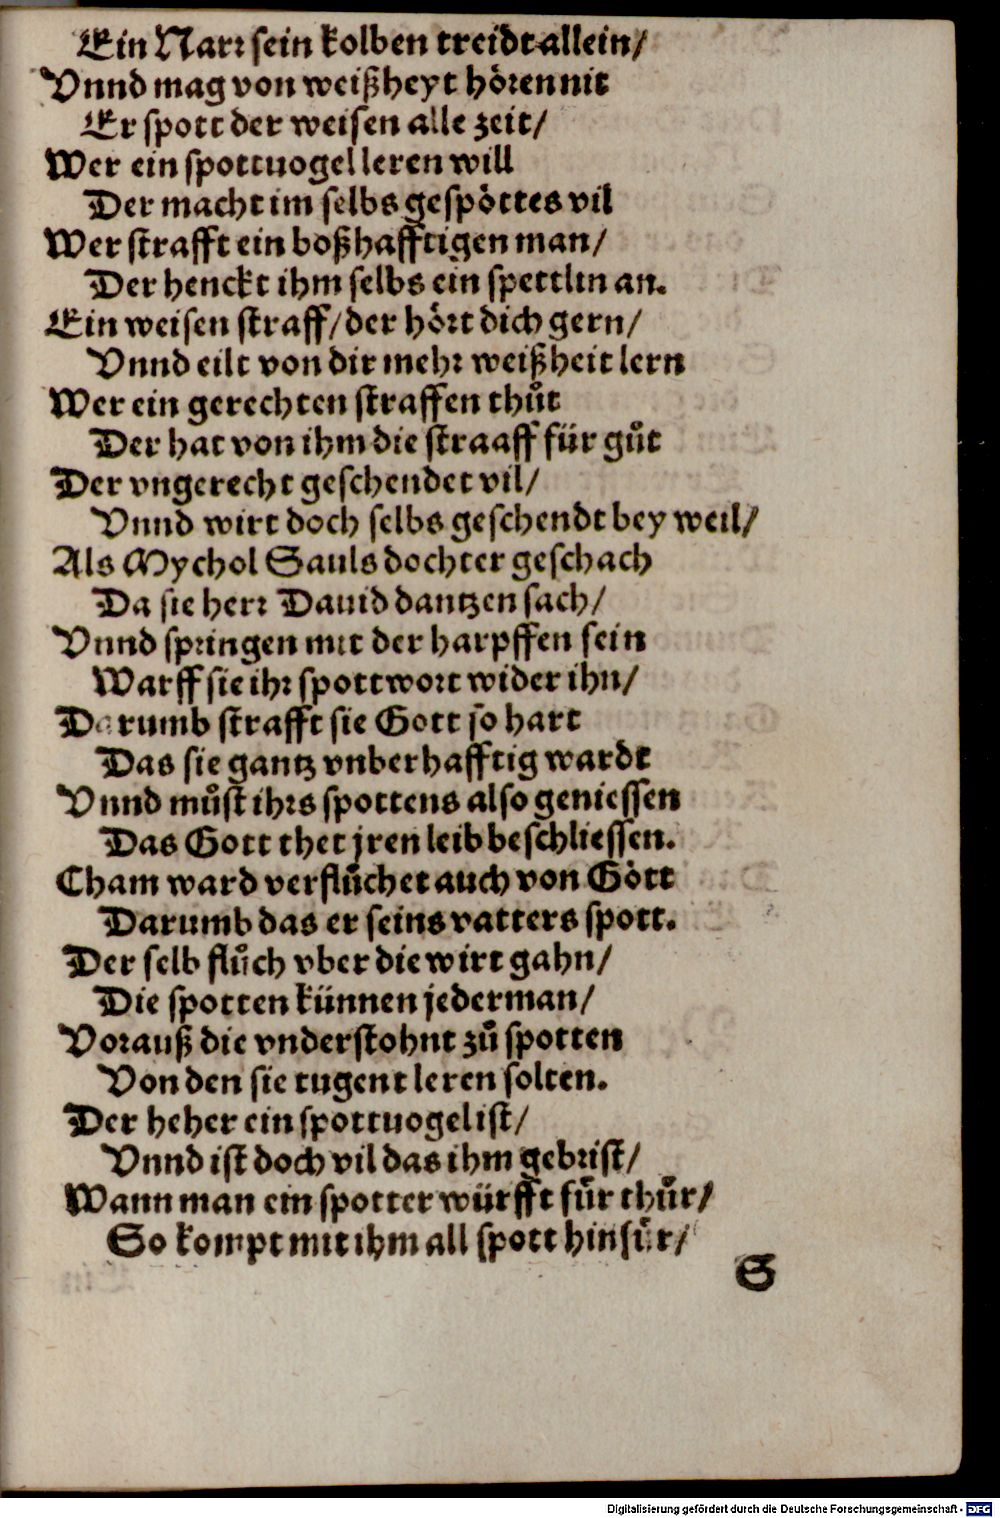 Ein Narr sein kolben treidt allein/
Vnnd mag von weißheyt hören nit
Er spott der weisen alle zeit/
Wer ein spottuogel leren will
Der macht im selbs gespöttes vil
Wer strafft ein boßhafftigen man/
Der henckt ihm selbs ein spettlin an.
Ein weisen straff/der hört dich gern/
Vnnd eilt von dir mehr weißheit lern
Wer ein gerechten straffen thůt
Der hat von ihm die straaff für gůt
Der vngerecht geschendet vil/
Vnnd wirt doch selbs geschendt bey weil/
Als Mychol Sauls dochter geschach
Da sie herr Dauid dantzen sach/
Vnnd springen mit der harpffen sein
Warff sie ihr spottwort wider ihn/
Darumb strafft sie Gott so hart
Das sie gantz vnberhafftig wardt
Vnnd můst ihrs spottens also geniessen
Das Gott thet jren leib beschliessen.
Cham ward verflůchet auch von Gött
Darumb das er seins vatters spott.
Der selb flůch vber die wirt gahn/
Die spotten künnen jederman/
Vorauß die vnderstohnt zů spotten
Von den sie tugent leren solten.
Der heher ein spottuogel ist/
Vnnd ist doch vil das ihm gebrist/
Wann man ein spotter würfft für thür/
So kompt mit ihm all spott hinfür/
S
Digitalisierung gefördert durch die Deutsche Forschungsgemeinschaft - DFG